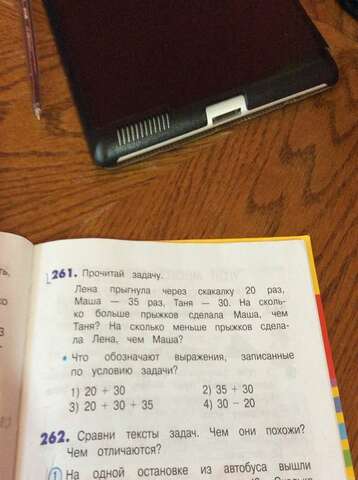 261. Прочитай задачу.
Лена прыгнула через скакалку 20 раз,
Маша — 35 раз, Таня — 30. На сколь-
ко больше прыжков сделала Маша, чем
Таня? На сколько меньше прыжков сдела-
ла Лена, чем Маша?
• Что обозначают выражения, записанные
по условию задачи?
1) 20 + 30 2) 35 + 30
3) 20 + 30 + 35 4) 30 − 20
262. Сравни тексты задач. Чем они похожи?
Чем отличаются?
1 На одной остановке из автобуса вышли